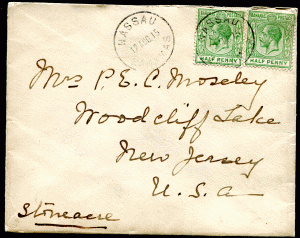 NASSAU
BAHAMAS
HALF PENNY
HALF PENNY
Mrs P. E. C. Moseley
Woodcliff Lake
New Jersey
U. S. A
Stoneacre